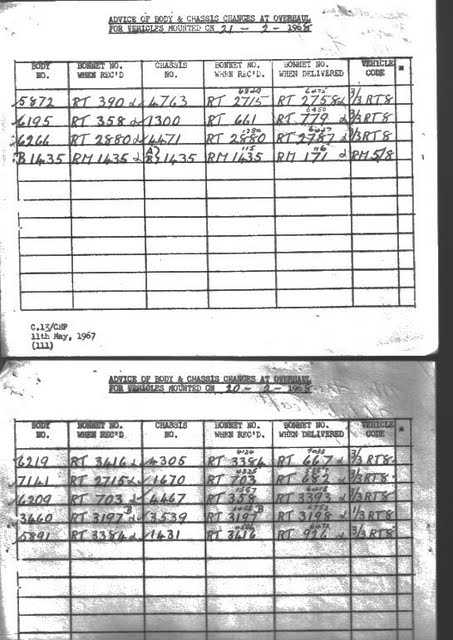 ADVICE OF BODY & CHASSIS CHANGES AT OVERHAUL
FOR VEHICLES MOUNTED ON 21 - 2 - 1968
BODY NO. BONNET NO. WHEN REC'D CHASSIS NO. BONNET NO. WHEN REC'D. BONNET NO. WHEN DELIVERED VEHICLE CODE *
5872 RT 390 4763 RT 2715 RT 2758 3/3 RT8
6195 RT 358 1300 RT 661 RT 779 3/3 RT8
6266 RT 2880 4471 RT 2880 RT 2787 3/3 RT8
B1435 RM 1435 1435 RM 1435 RM 171 RM 5/8
C.13/CHP
11th May, 1967
(111)
ADVICE OF BODY & CHASSIS CHANGES AT OVERHAUL
FOR VEHICLES MOUNTED ON 20 - 2 - 1968
BODY NO. BONNET NO. WHEN REC'D CHASSIS NO. BONNET NO. WHEN REC'D. BONNET NO. WHEN DELIVERED VEHICLE CODE *
6219 RT 3416 4305 RT 3384 RT 667 3/3 RT8
7141 RT 2715 1670 RT 703 RT 682 3/3 RT8
6209 RT 703 4467 RT 358 RT 3393 3/3 RT8
3460 RT 3197 B 3539 RT 3197 B RT 3198 1/3 RT8
5891 RT 3384 1431 RT 3416 RT 926 3/3 RT8